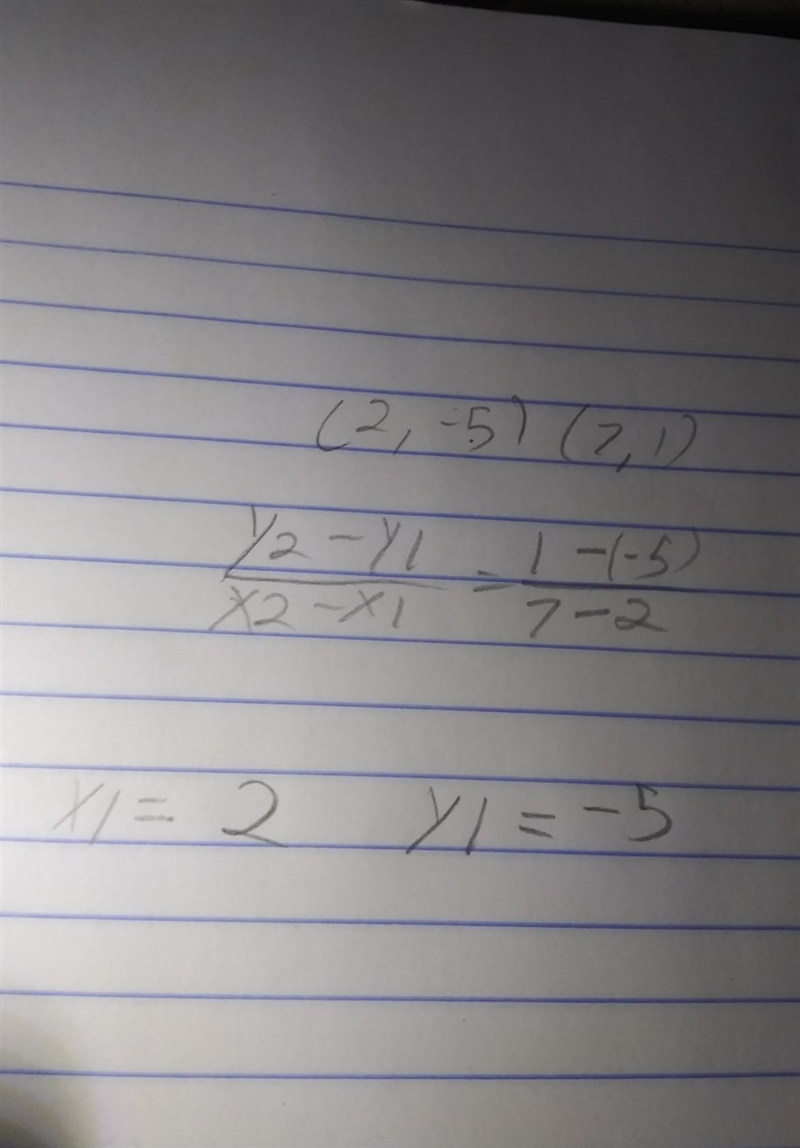 (2, -5) (7, 1)
y2 - y1 / x2 - x1 = 1 - (-5) / 7 - 2
x1 = 2 y1 = -5